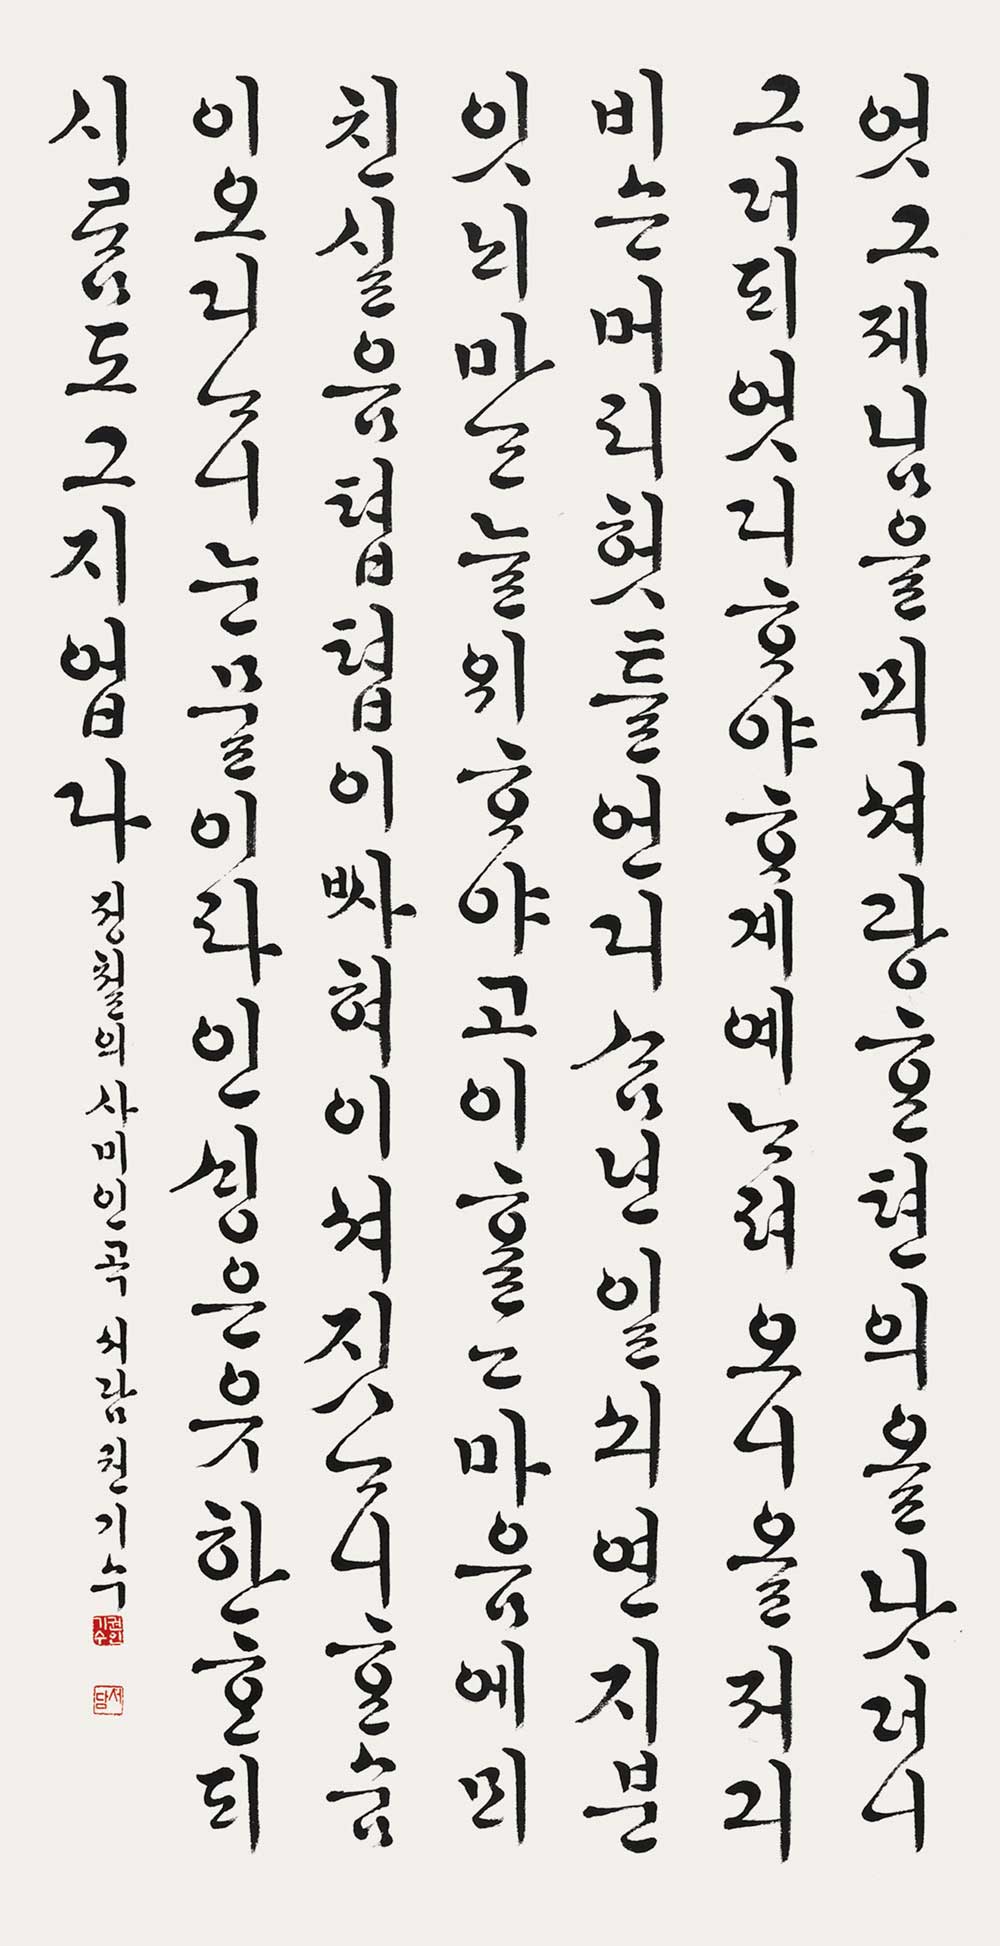 엇그제님을뫼셔광ᄒᆞᆫ뎐의올낫더니
그더되엇디ᄒᆞ야ᄒᆞ계예ᄂᆞ려오니올저긔
비슨머리헛틀언디ᄉᆞᆷ년일쇠연지분
잇뇌마ᄂᆞᆫ눌위ᄒᆞ야고이ᄒᆞᆯ고마음에ᄆᆡ
친실음텹텹이ᄡᅡ혀이셔짓ᄂᆞ니ᄒᆞᆫ숨
이오디ᄂᆞ니눈물이라인싱은읏한ᄒᆞᆫ되
시름도그지업다 정철의사미인곡 서담권기수
서담